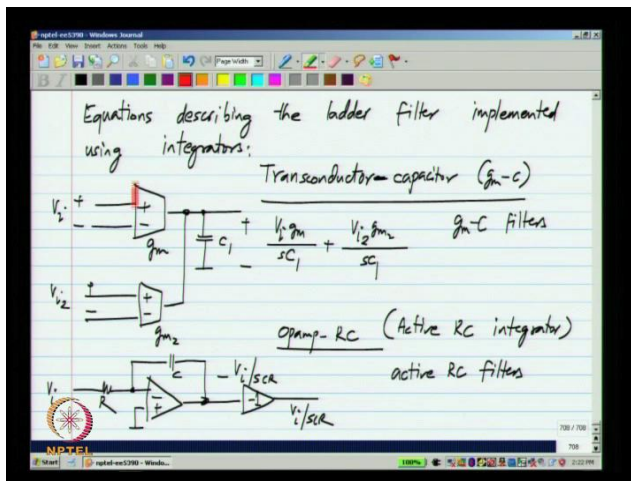 nptel-ee5390 - Windows Journal
File Edit View Insert Actions Tools Help
Page Width
B I
Equations describing the ladder filter implemented
using integrators:
Transconductor-capacitor (gm-C)
Vi + - + - gm C1 + - Vi gm / sC1 + Vi2 gm2 / sC1 gm-C filters
Vi2 + - + - gm2
Opamp-RC (Active RC integrator)
Vi R C - + -Vi/sCR -1 Vi/sCR active RC filters
NPTEL
708 / 708
708
Start nptel-ee5390 - Windo... 100% 2:22 PM